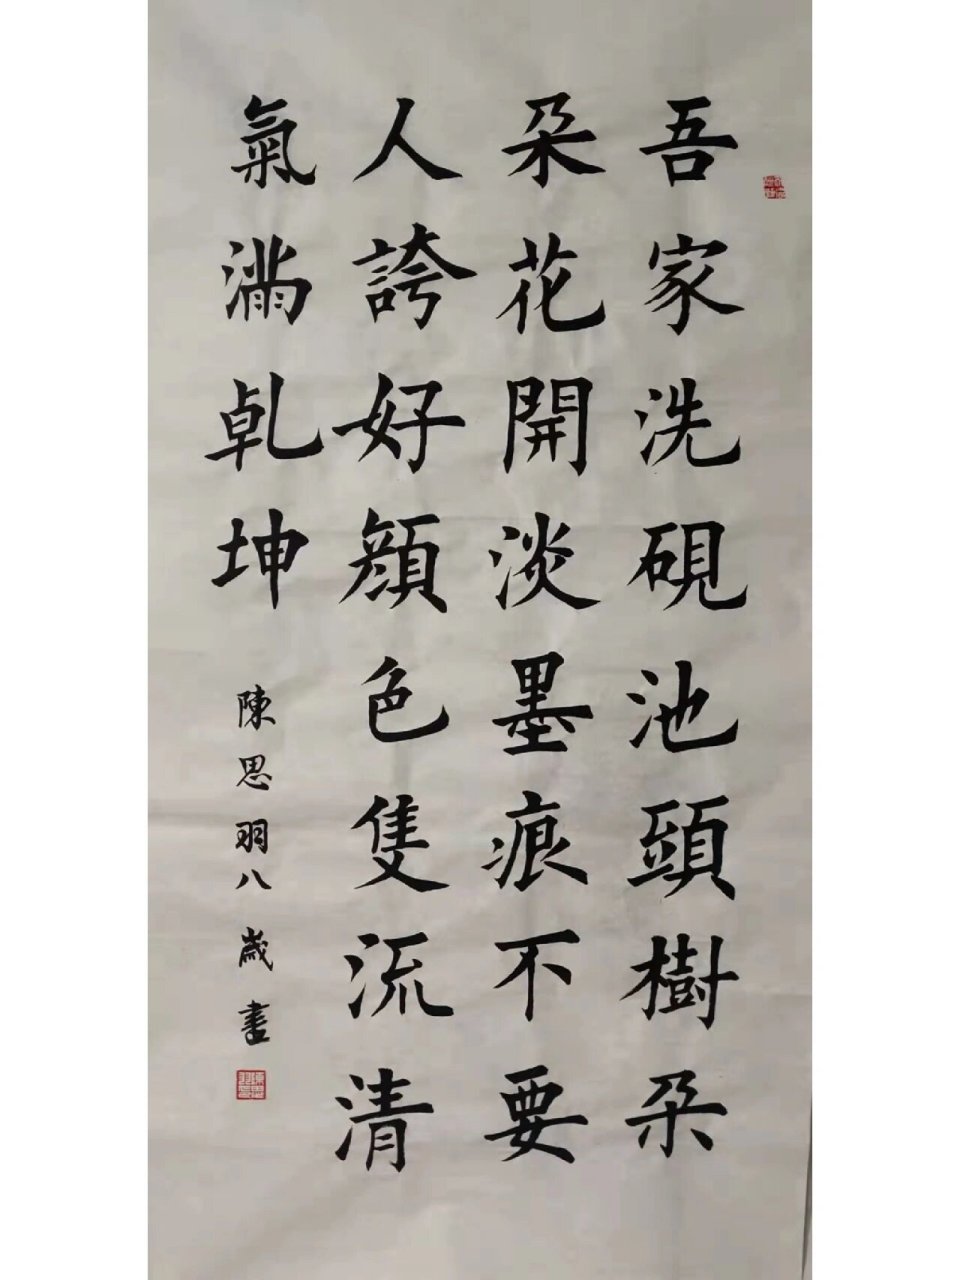 吾家洗硯池頭樹朵
朵花開淡墨痕不要
人誇好顔色隻流清
氣滿乾坤
陳思羽八歲書